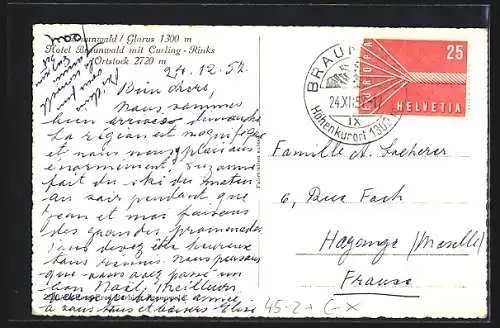 Braunwald / Glarus 1300 m
Hotel Braunwald mit Curling-Rinks
Ortstock 2720 m
24.12.57.
Bien chers,
Nous sommes
bien arrivés dimanche
La région est magnifique
et nous nous plaisons
énormément. Suzanne
fait du ski du matin
au soir pendant que
Jean et moi faisons
des grandes promenades
Vous devez être heureux
tous réunis. Nous pensons
que vous avez passé un
bon Noël, meilleurs
bonne année
à vous tous et baisers Elise
BRAUNWALD
24.XII.57
IX
Höhenkurort 1300 m
EUROPA
25
HELVETIA
Famille A. Lacherer
6, Rue Foch
Hayange (Moselle)
France
45-2+ GX